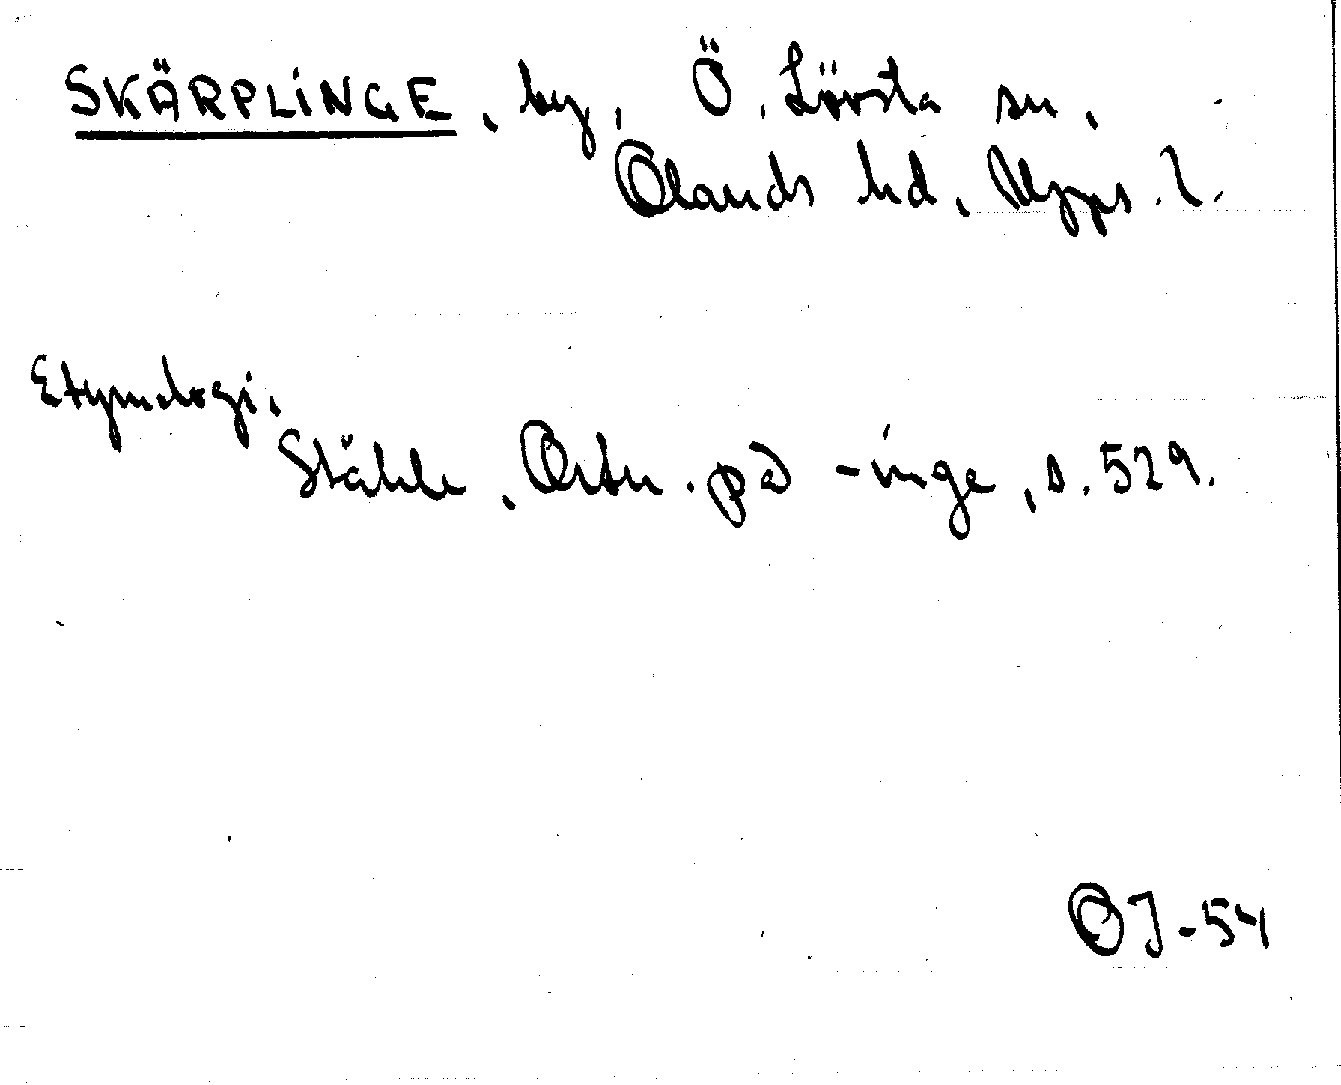 SKÄRPLINGE, by, Ö. Lövsta sn,
Olands hd, Upps. l.
Etymologi,
Ståhle, Ortn. på -inge, s. 529.
OJ-54